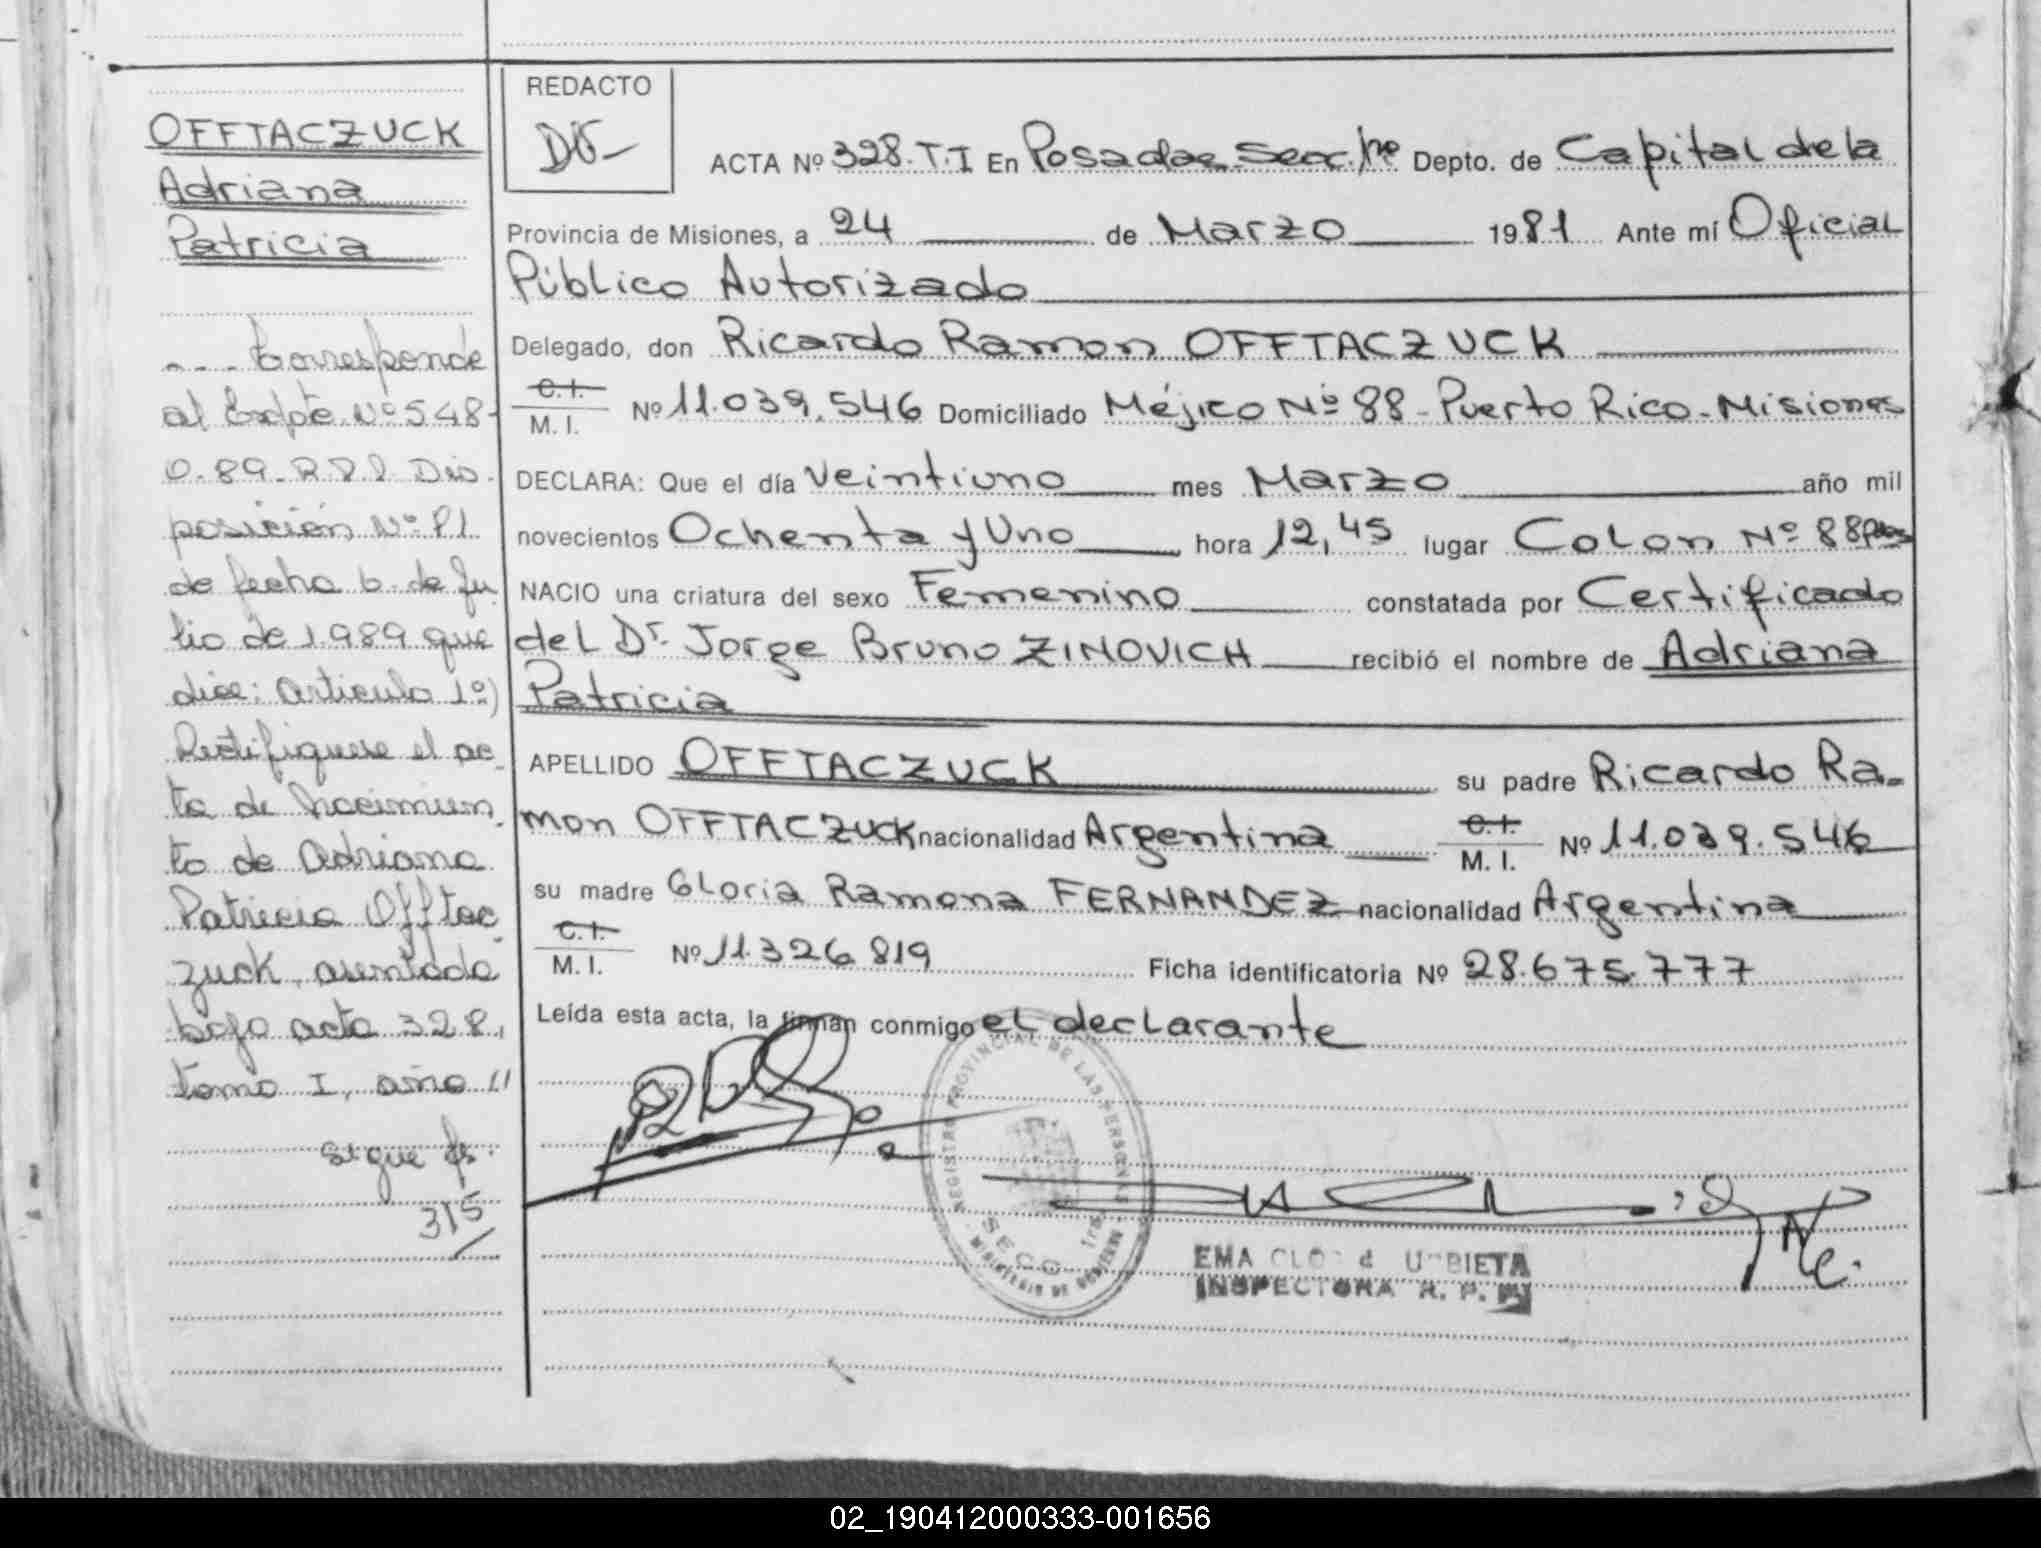 OFFTACZUCK
Adriana
Patricia
- - - Corresponde
al Expte Nº 548-
0.89. Dis-
posición Nº 81
de fecha 6 de Ju
lio de 1989 que
dice: Articulo 1º)
Rectifiquese el ac-
ta de Nacimien-
to de Adriana
Patricia Offtac-
zuck, asentada
bajo acta 328,
tomo I, año
sigue fs.
315
REDACTO
ACTA Nº 328.T.I En Posadas Secc. 1ra Depto. de Capital de la
Provincia de Misiones, a 24 de Marzo 1981 Ante mí Oficial
Público Autorizado
Delegado, don Ricardo Ramon OFFTACZUCK
C.I.
M. I. Nº 11.039.546 Domiciliado Méjico Nº 88 - Puerto Rico - Misiones
DECLARA: Que el día Veintiuno mes Marzo año mil
novecientos Ochenta y Uno hora 12,45 lugar Colon Nº 88
NACIO una criatura del sexo Femenino constatada por Certificado
del Dr. Jorge Bruno ZINOVICH recibió el nombre de Adriana
Patricia
APELLIDO OFFTACZUCK su padre Ricardo Ra-
mon OFFTACZUCK nacionalidad Argentina C.I. M. I. Nº 11.039.546
su madre Gloria Ramona FERNANDEZ nacionalidad Argentina
C.I.
M. I. Nº 11.326.819 Ficha identificatoria Nº 28.675.777
Leída esta acta, la firman conmigo el declarante
REGISTRO PROVINCIAL DE LAS PERSONAS
SECC. 1ra.
MINISTERIO DE GOBIERNO
EMA
INSPECTORA R. P. P.
02_190412000333-001656